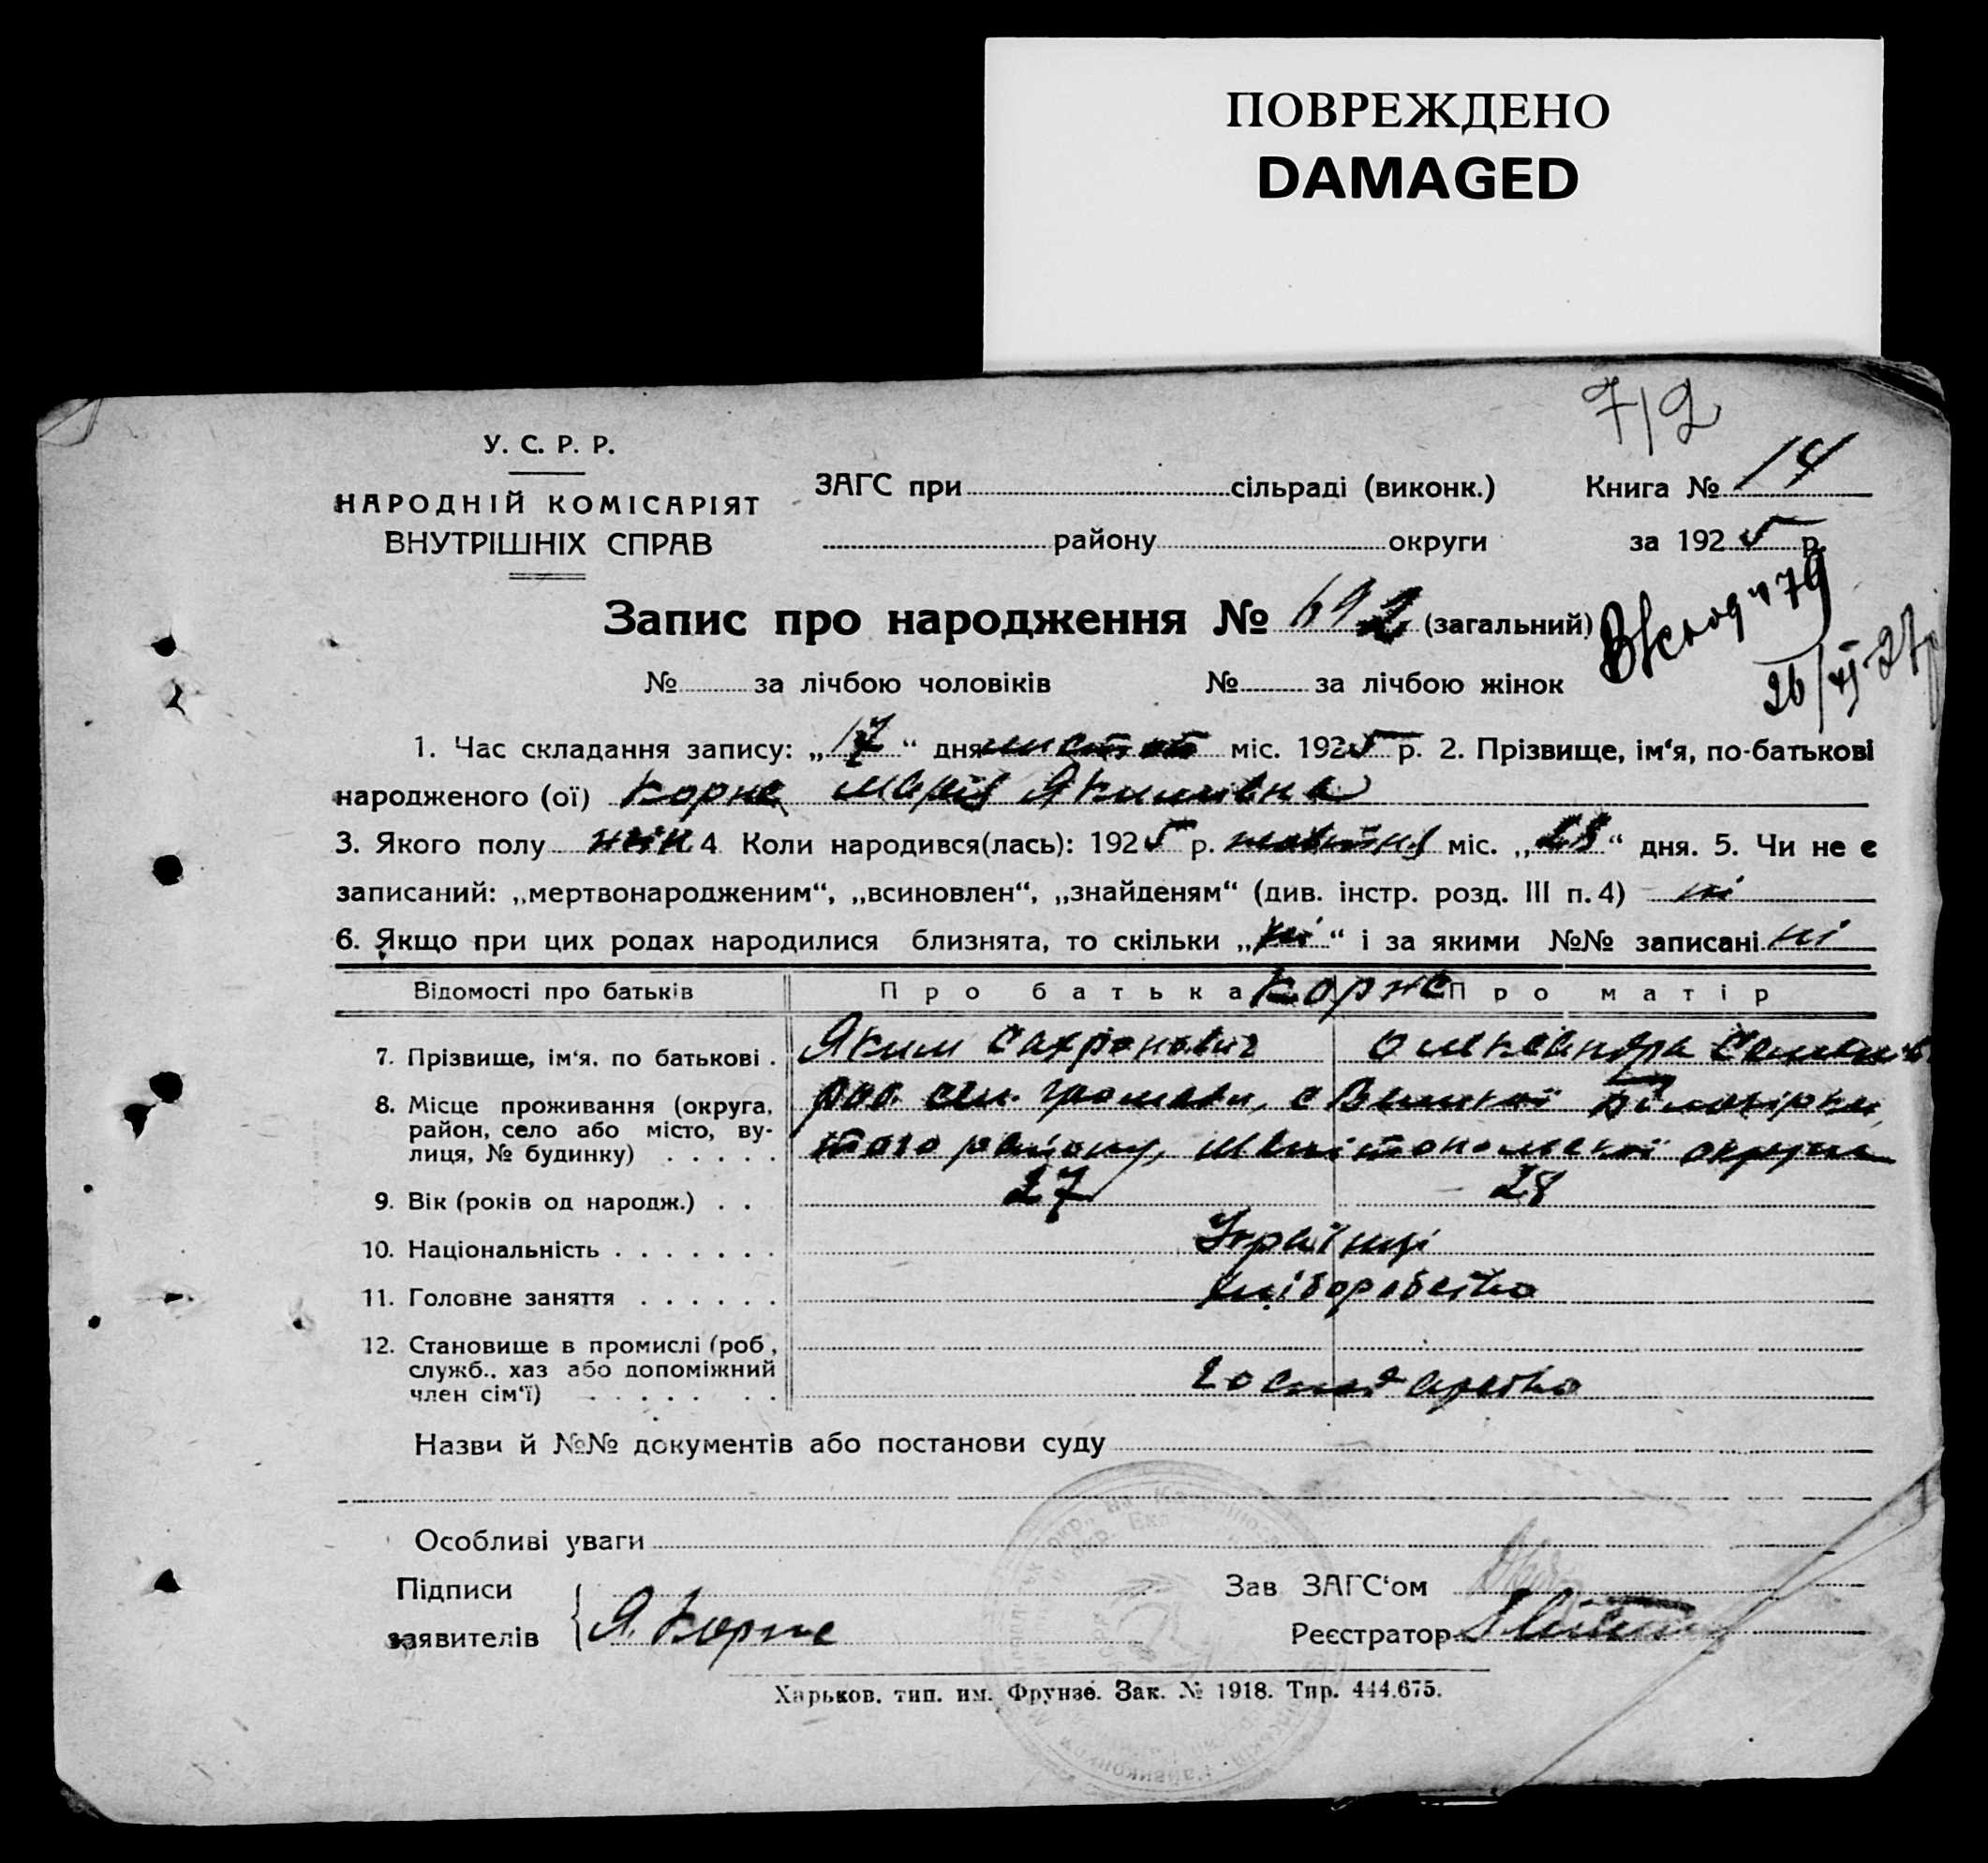 ПОВРЕЖДЕНО
DAMAGED
7/2
У. С. Р. Р.
НАРОДНІЙ КОМІСАРІЯТ
ВНУТРІШНІХ СПРАВ
ЗАГС при сільраді (виконк.)
району округи
Книга № 14
за 1925 р.
Запис про народження № 692 (загальний)
№ за лічбою чоловіків № за лічбою жінок
1. Час складання запису: „17“ дня листоп міс. 1925 р. 2. Прізвище, ім‘я, по-батькові
народженого (ої) Корж Марія Якимівна
3. Якого полу жін. 4 Коли народився(лась): 1925 р. жовтня міс. „28“ дня. 5. Чи не є
записаний: „мертвонародженим“, „всиновлен“, „знайденям“ (див. інстр. розд. III п. 4) ні
6. Якщо при цих родах народилися близнята, то скільки „ні“ і за якими №№ записані ні
Відомості про батьків Про батька Корж Про матір
7. Прізвище, ім‘я, по батькові . Яким Сахронович Олександра
8. Місце проживання (округа, район, село або місто, вулиця, № будинку) . . . . . сел. громади, с Великої Білозірки,
того району, Мелітопольської округи
9. Вік (років од народж.) . . 27 28
10. Національність . . . . . . . Українці
11. Головне заняття . . . . . . хліборобство
12. Становище в промислі (роб, служб., хаз або допоміжний член сім‘ї) . . . . . . господарство
Назви й №№ документів або постанови суду
Особливі уваги
Підписи
заявителів { Я. Корж
Зав ЗАГС‘ом
Реєстратор
Харьков. тип. им. Фрунзе. Зак. № 1918. Тир. 444.675.